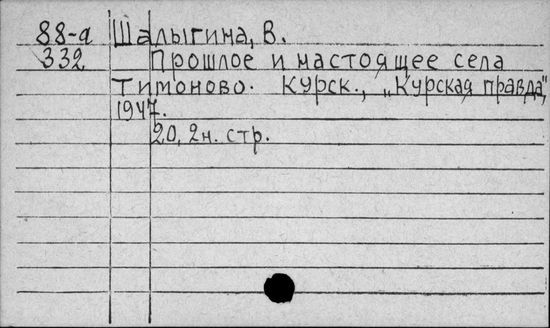 88-а Шалыгина, В.
332 Прошлое и настоящее села
Тимоново. Курск., „Курская правда",
1947.
20, 2н. стр.